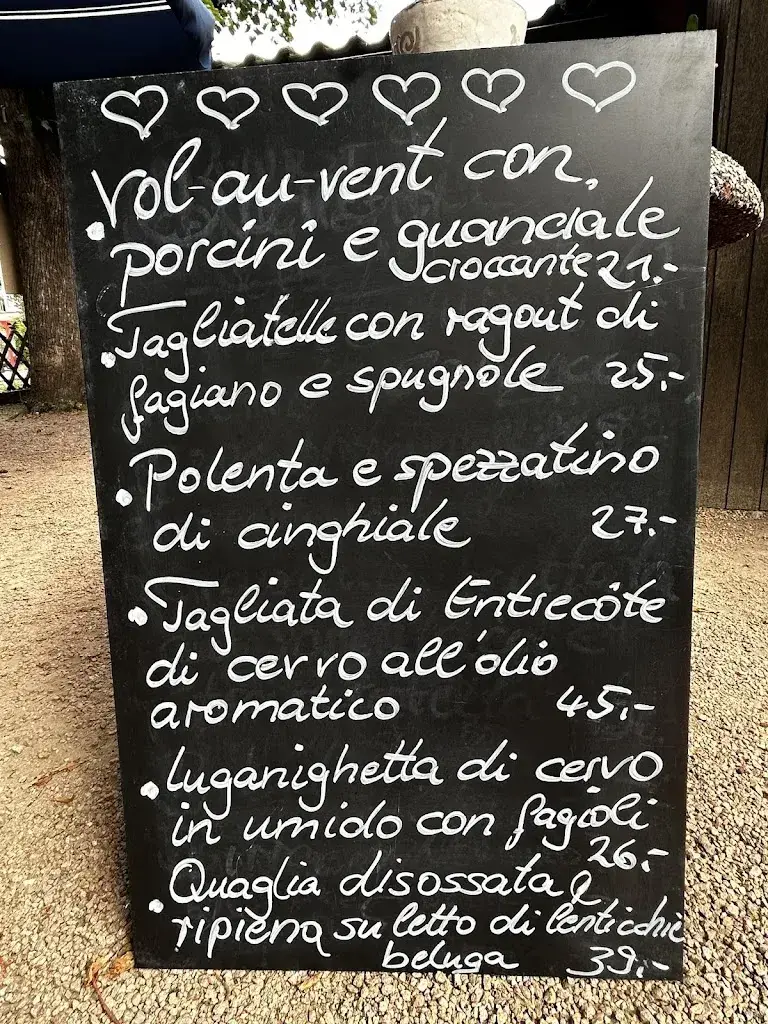 Vol-au-vent con
porcini e guanciale
croccante 21.-
Tagliatelle con ragout di
fagiano e spugnole 25.-
Polenta e spezzatino
di cinghiale 27.-
Tagliata di Entrecôte
di cervo all'olio
aromatico 45.-
luganighetta di cervo
in umido con fagioli
26.-
Quaglia disossata e
ripiena su letto di lenticchie
beluga 39.-